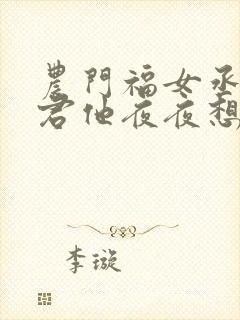 農門福女丞
君他夜夜想
李璇